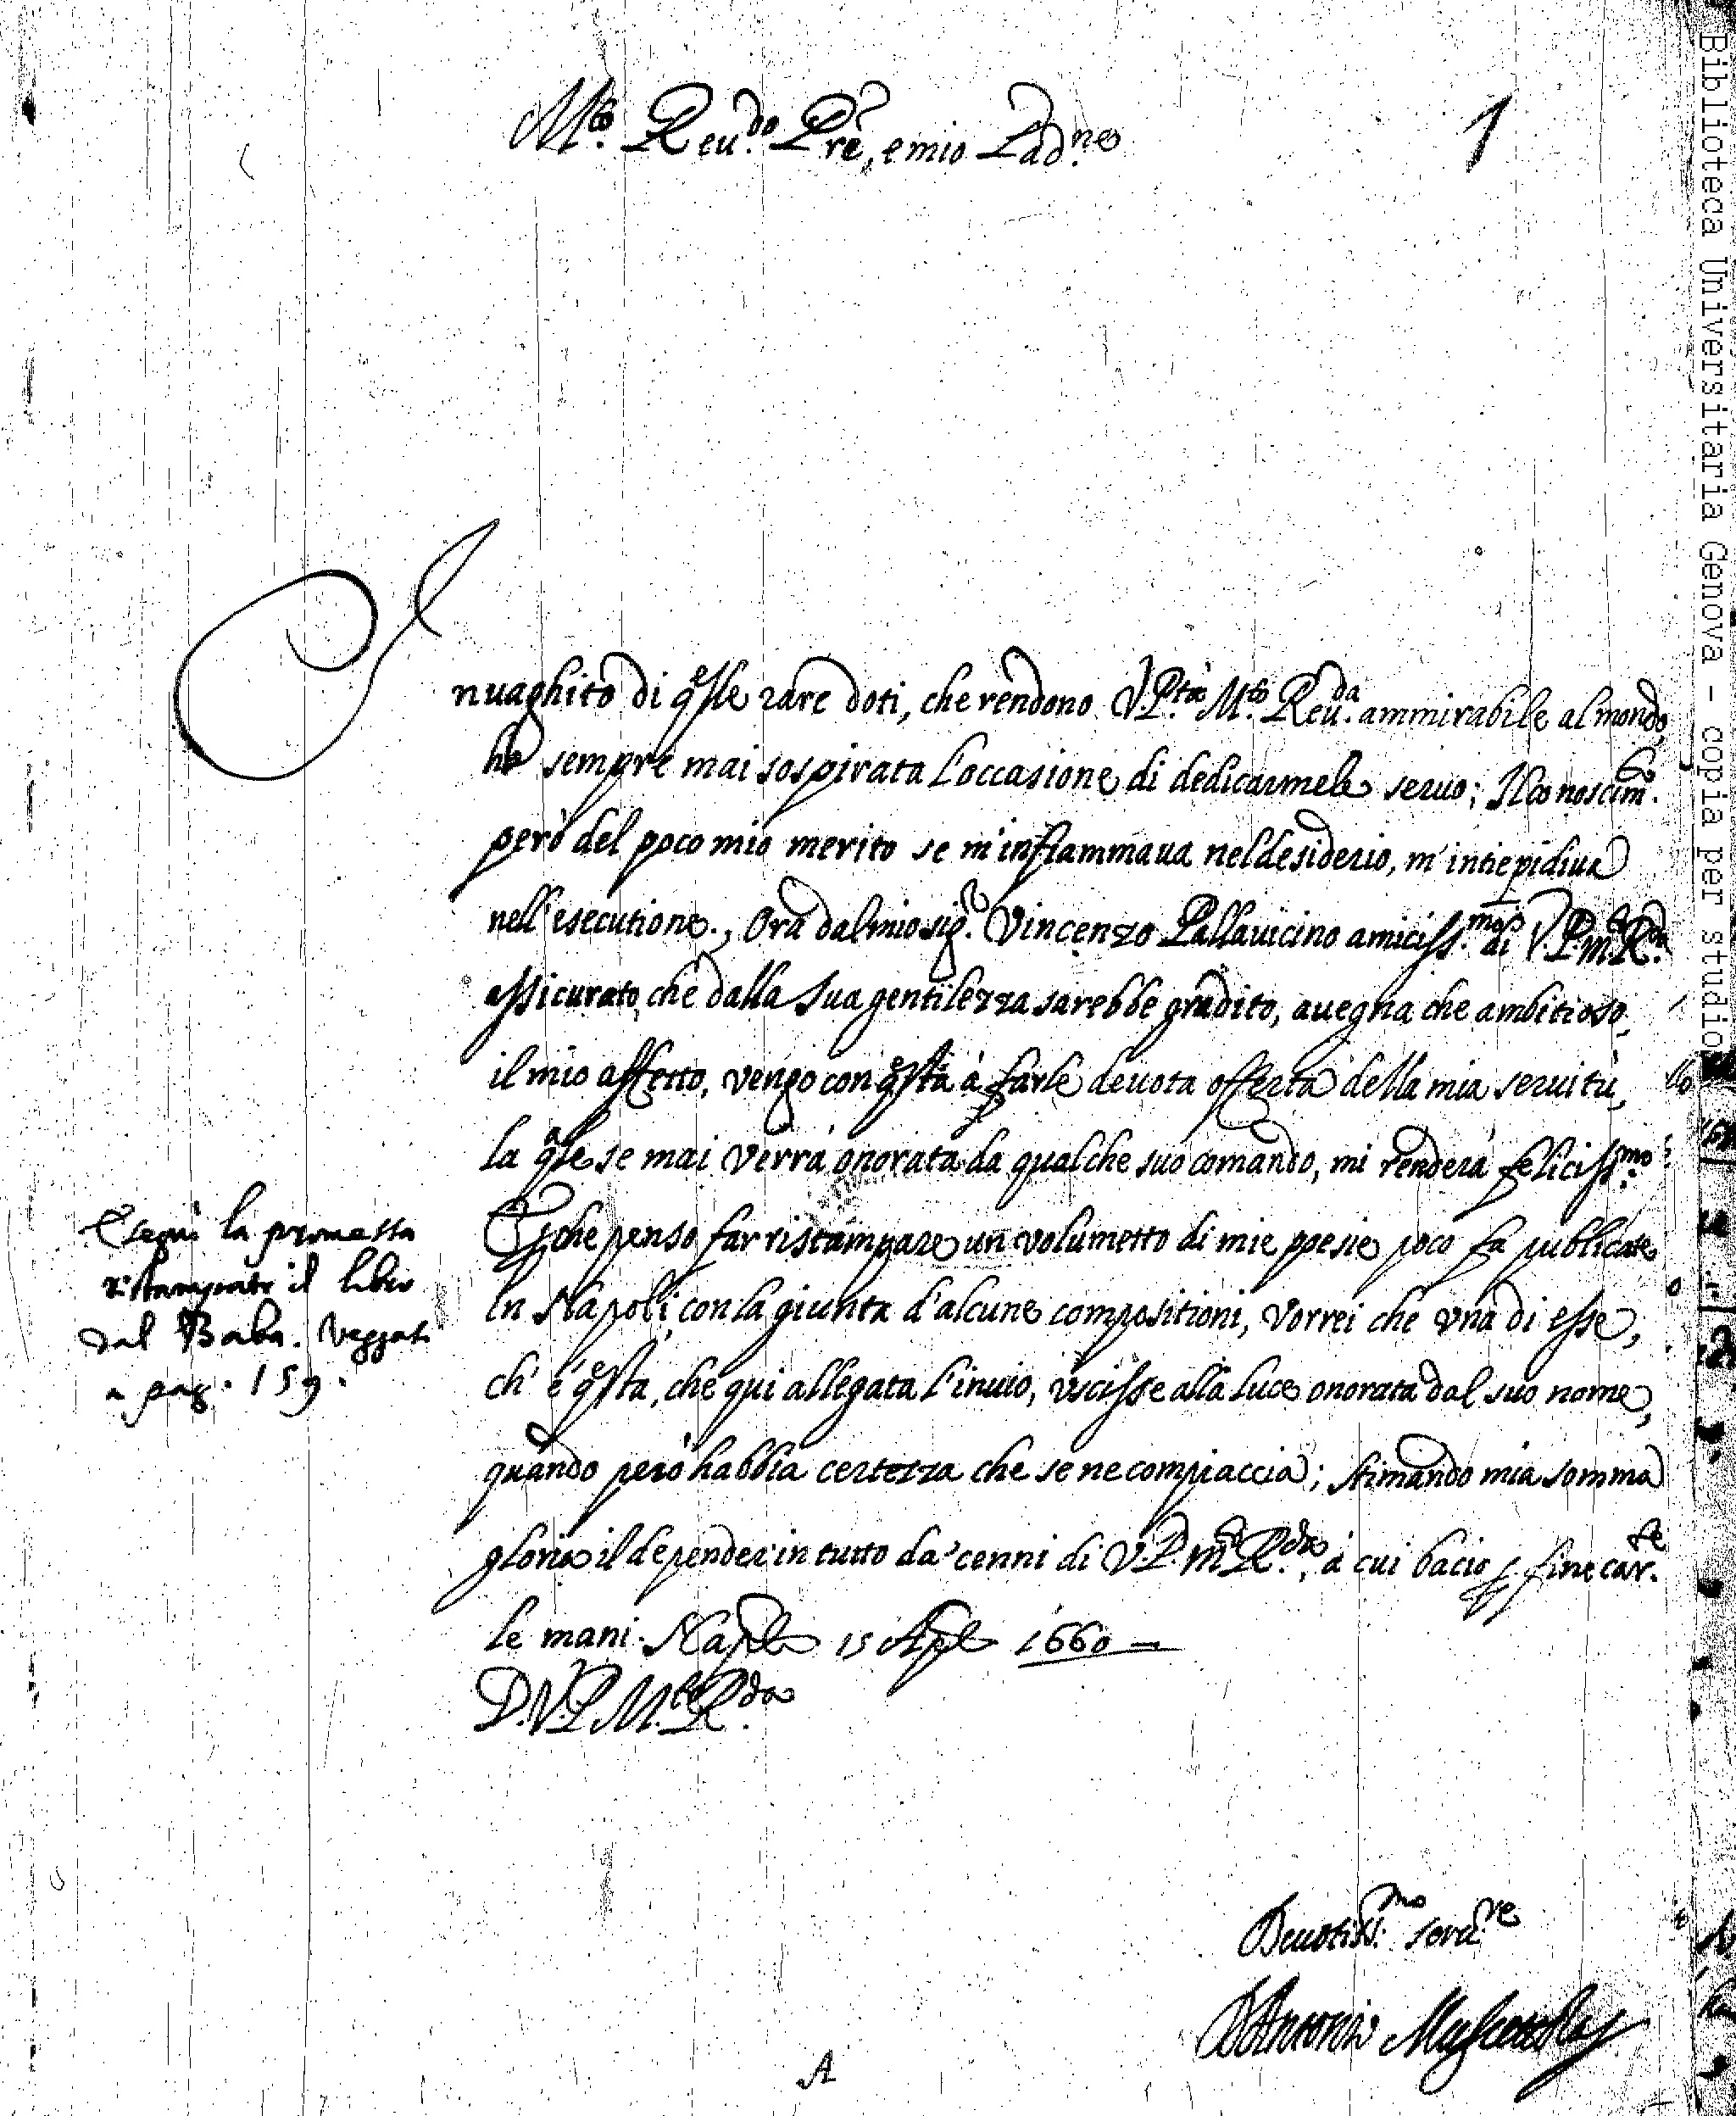 M.to Reu.do Prē, e mio Pad.ne
1
Inuaghito di q̃ste rare doti, che rendono V.P.tà M.to Reu.da ammirabile al mondo,
hò sempre mai sospirata l'occasione di dedicarmele seruo; Il conoscim.to
però del poco mio merito se m'infiammaua nel desiderio, m'intiepidiua
nell'esecutione., Ora dal mio sig.r Vincenzo Pallauicino amiciss.mo di V.P.M.R.da
assicurato, che dalla sua gentilezza sarebbe gradito, auegna che ambitioso,
il mio affetto, vengo con q̃sta à farle deuota offerta della mia seruitù,
la q̃le se mai verrà onorata da qualche suo comando, mi renderà feliciss.mo
E p̱che penso far ristampare un volumetto di mie poesie poco fà publicate
In Napoli, con la giunta d'alcune compositioni, vorrei che vna di esse,
ch' è q̃sta, che qui allegata l'inuio, vscisse alla luce onorata dal suo nome,
quando però habbia certezza che se ne compiaccia; stimando mia somma
gloria il depender in tutto da' cenni di V.P. M.R.da, à cui bacio p̱ fine car.te
le mani. Nap.li 15 Ap.le 1660
D.V.P.M.R.da
Deuotiss.mo seru.re
D Antonio Muscettola
A
Eseguì la promessa
ristampato il libro
dal Baba. Veggasi
a pag. 159.
Biblioteca Universitaria Genova - copia per studio